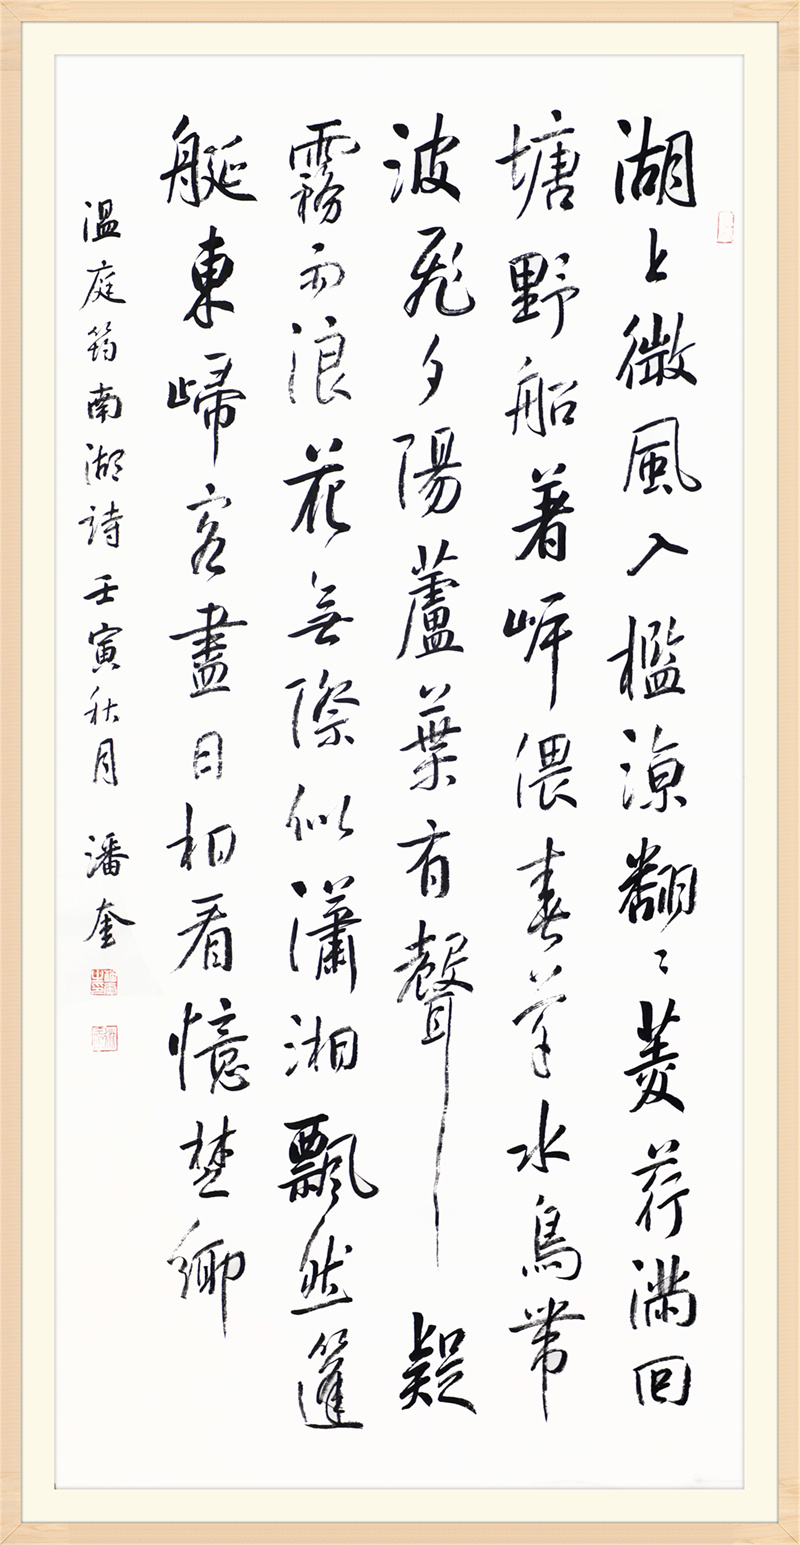 湖上微風入檻涼翻〻菱荇滿回
塘野船著岸偎春草水鳥帶
波飛夕陽蘆葉有聲疑
霧雨浪花無際似瀟湘飄然篷
艇東歸客盡日相看憶楚鄉
溫庭筠南湖詩壬寅秋月 潘奎